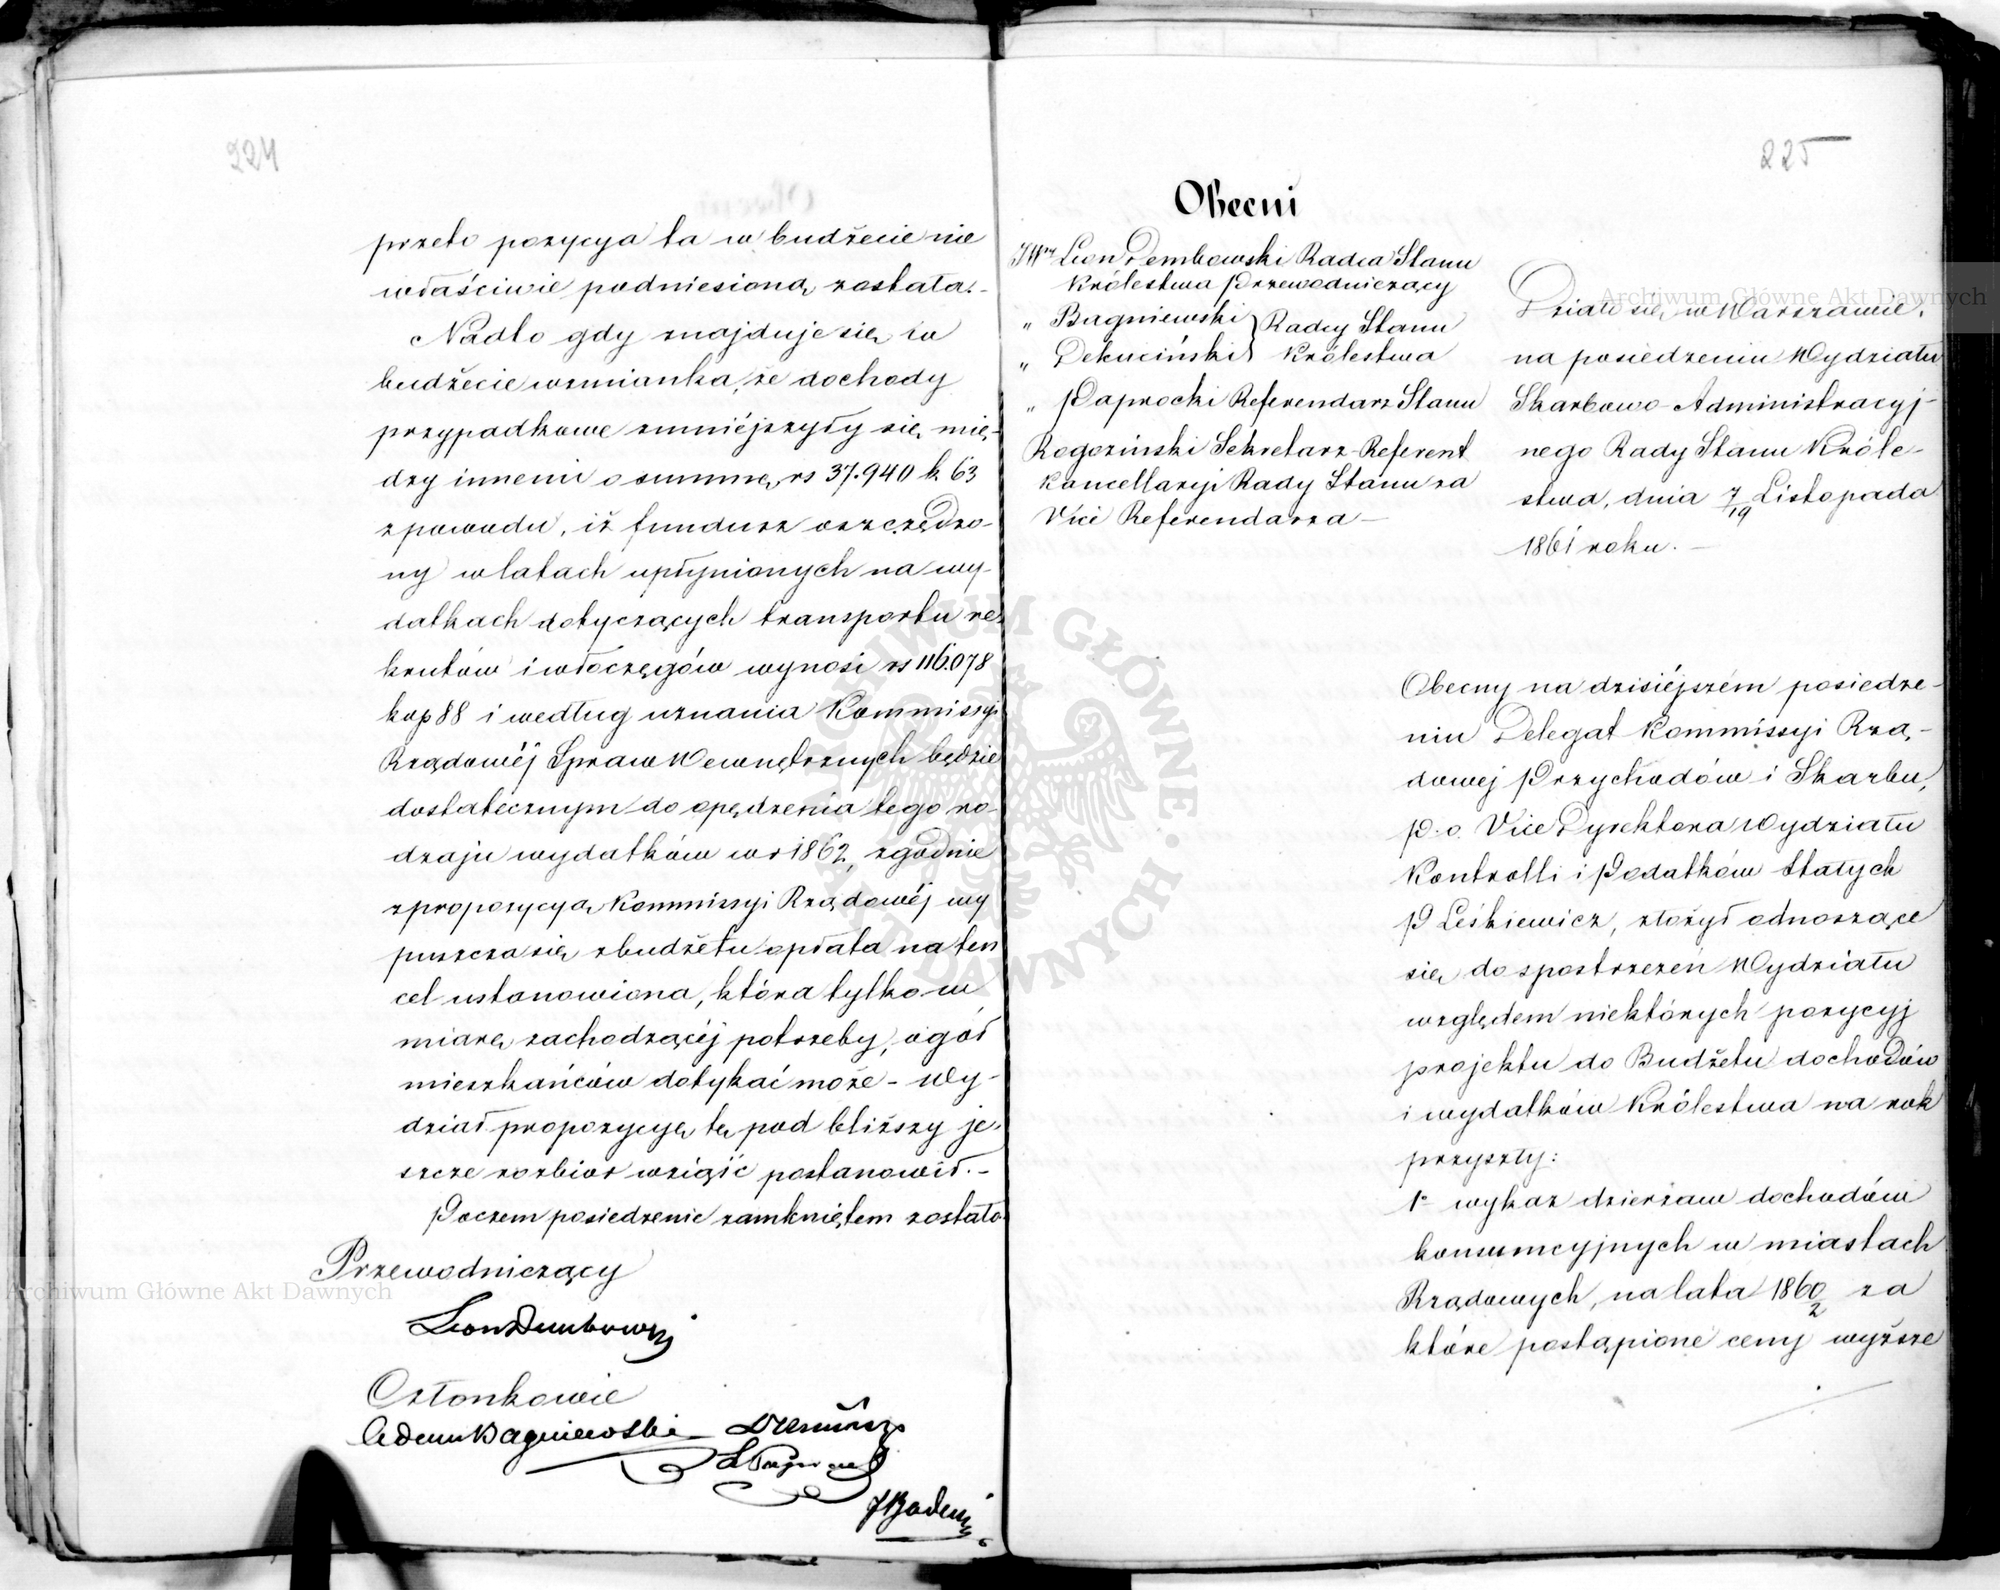 224
przeto pozycya ta w budżecie nie
właściwie podniesioną została.-
Nadto gdy znajduje się w
budżecie wzmianka, że dochody
przypadkowe zmniéjszyły się mię-
dzy innemi o summę rs 37.940 k 63
z powodu, iż fundusz oszczędzo-
ny w latach upłynionych na wy-
datkach dotyczących transportu re-
krutów i włóczęgów wynosi rs 116.078
kop 88 i według uznania Kommissyi
Rządowéj Spraw Wewnętrznych będzie
dostatecznym do opędzenia tego ro-
dzaju wydatków w r 1862, zgodnie
z propozycyą Kommissyi Rządowéj wy
puszcza się z budżetu opłata na ten
cel ustanowiona, która tylko w
miarę zachodzącéj potrzeby, ogół
mieszkańców dotykać może - Wy-
dział propozycyę tę pod bliższy je-
szcze rozbiór wziąść postanowił.-
Poczem posiedzenie zamkniętem zostało
Przewodniczący
Leon Dembowski
Członkowie
Adam Bagniewski
JBadeni
225
Obecni
JWny Leon Dembowski Radca Stanu
Królestwa Przewodniczący
" Bagniewski } Radcy Stanu
" Dekuciński } Królestwa
" Paprocki Referendarz Stanu
Rogoziński Sekretarz-Referent
Kancellaryi Rady Stanu za
Vice Referendarza —
Działo się w Warszawie,
na posiedzeniu Wydziału
Skarbowo-Administracyj-
nego Rady Stanu Króle-
stwa, dnia 7/19 Listopada
1861 roku. —
Obecny na dzisiéjszém posiedze-
niu Delegat Kommissyi Rzą-
dowej Przychodów i Skarbu,
p.o. Vice Dyrektora Wydziału
Kontrolli i Podatków Stałych
P Leśkiewicz, złożył odnoszące
się do spostrzeżeń Wydziału
względem niektórych pozycyj
projektu do Budżetu dochodów
i wydatków Królestwa na rok
przyszły:
1º wykaz dzierżaw dochodów
konsumcyjnych w miastach
Rządowych, na lata 1860/2 za
które postąpione ceny wyższe
Archiwum Główne Akt Dawnych
Archiwum Główne Akt Dawnych
ARCHIWUM GŁÓWNE AKT DAWNYCH